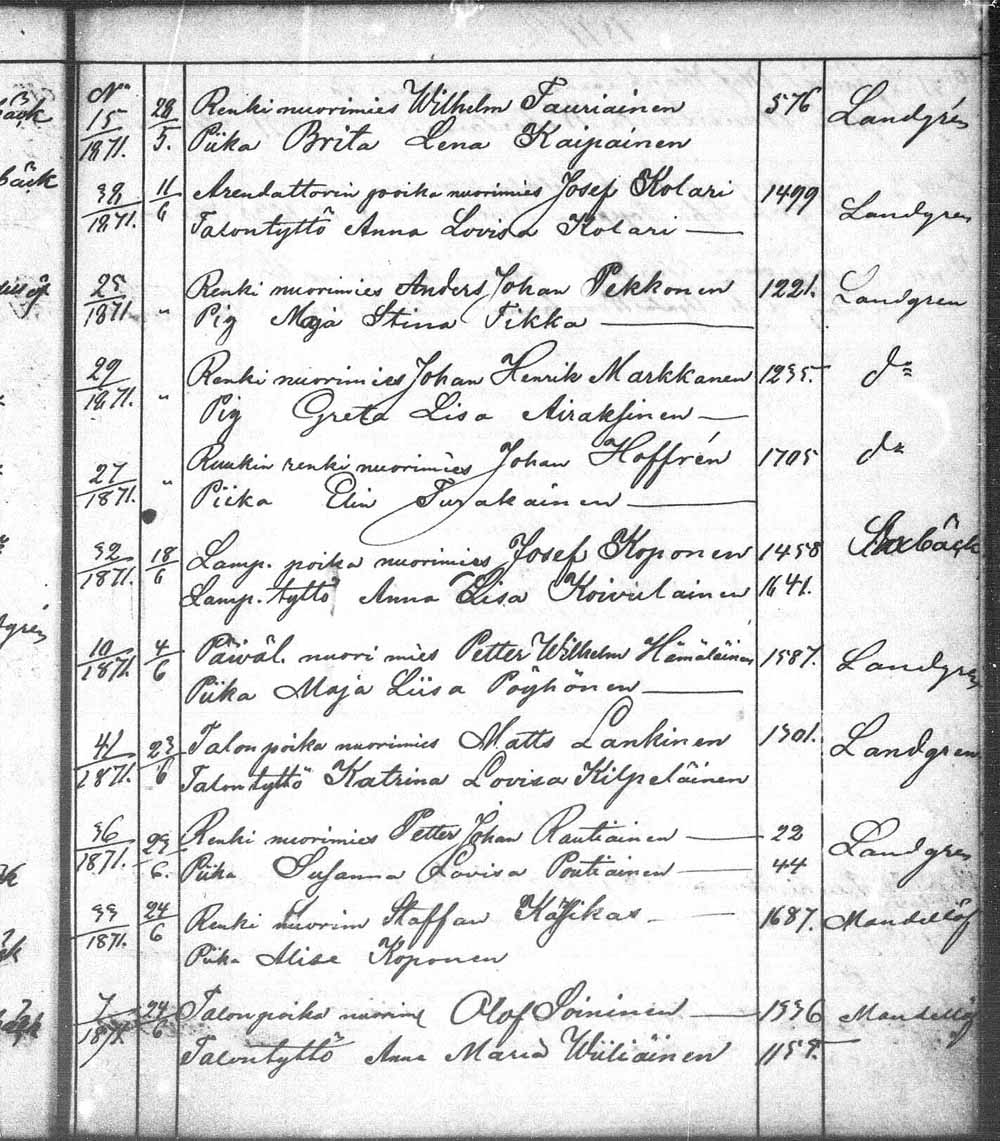 No 15/1871. 28/5. Renki nuorimies Wilhelm Tauriainen 576 Landgrén
Piika Brita Lena Kaipainen
38/1871. 11/6 Arendattorin poika nuorimies Josef Kolari 1499 Landgren
Talontyttö Anna Lovisa Kolari —
25/1871. " Renki nuorimies Anders Johan Pekkonen 1221. Landgren
Pig Maja Stina Tikka —
29/1871. " Renki nuorimies Johan Henrik Markkanen 1235. do
Pig Greta Lisa Airaksinen —
27/1871. " Ruukin renki nuorimies Johan Hoffrén 1705 do
Piika Elin Turakainen —
32/1871. 18/6 Lamp. poika nuorimies Josef Koponen 1458
Lamp. tyttö Anna Lisa Koivulainen 1641.
10/1871. 4/6 Päiväl. nuori mies Petter Wilhelm Hämäläinen 1387. Landgren
Piika Maja Liisa Pöyhönen —
41/1871. 23/6 Talon poika nuorimies Matts Lankinen 1301. Landgren
Talontyttö Katrina Lovisa Kilpeläinen
36/1871. 23/6. Renki nuorimies Petter Johan Rautiainen — 22 Landgren
Piika Susanna Lovisa Poutiainen — 44
33/1871. 24/6 Renki nuorim Staffan 1687. Mandellöf
Piika Alise Koponen
7/1871. 24/6 Talonpoika nuorim Olof Soininen — 1336 Mandellöf
Talontyttö Anna Maria Wiiliäinen 1155.